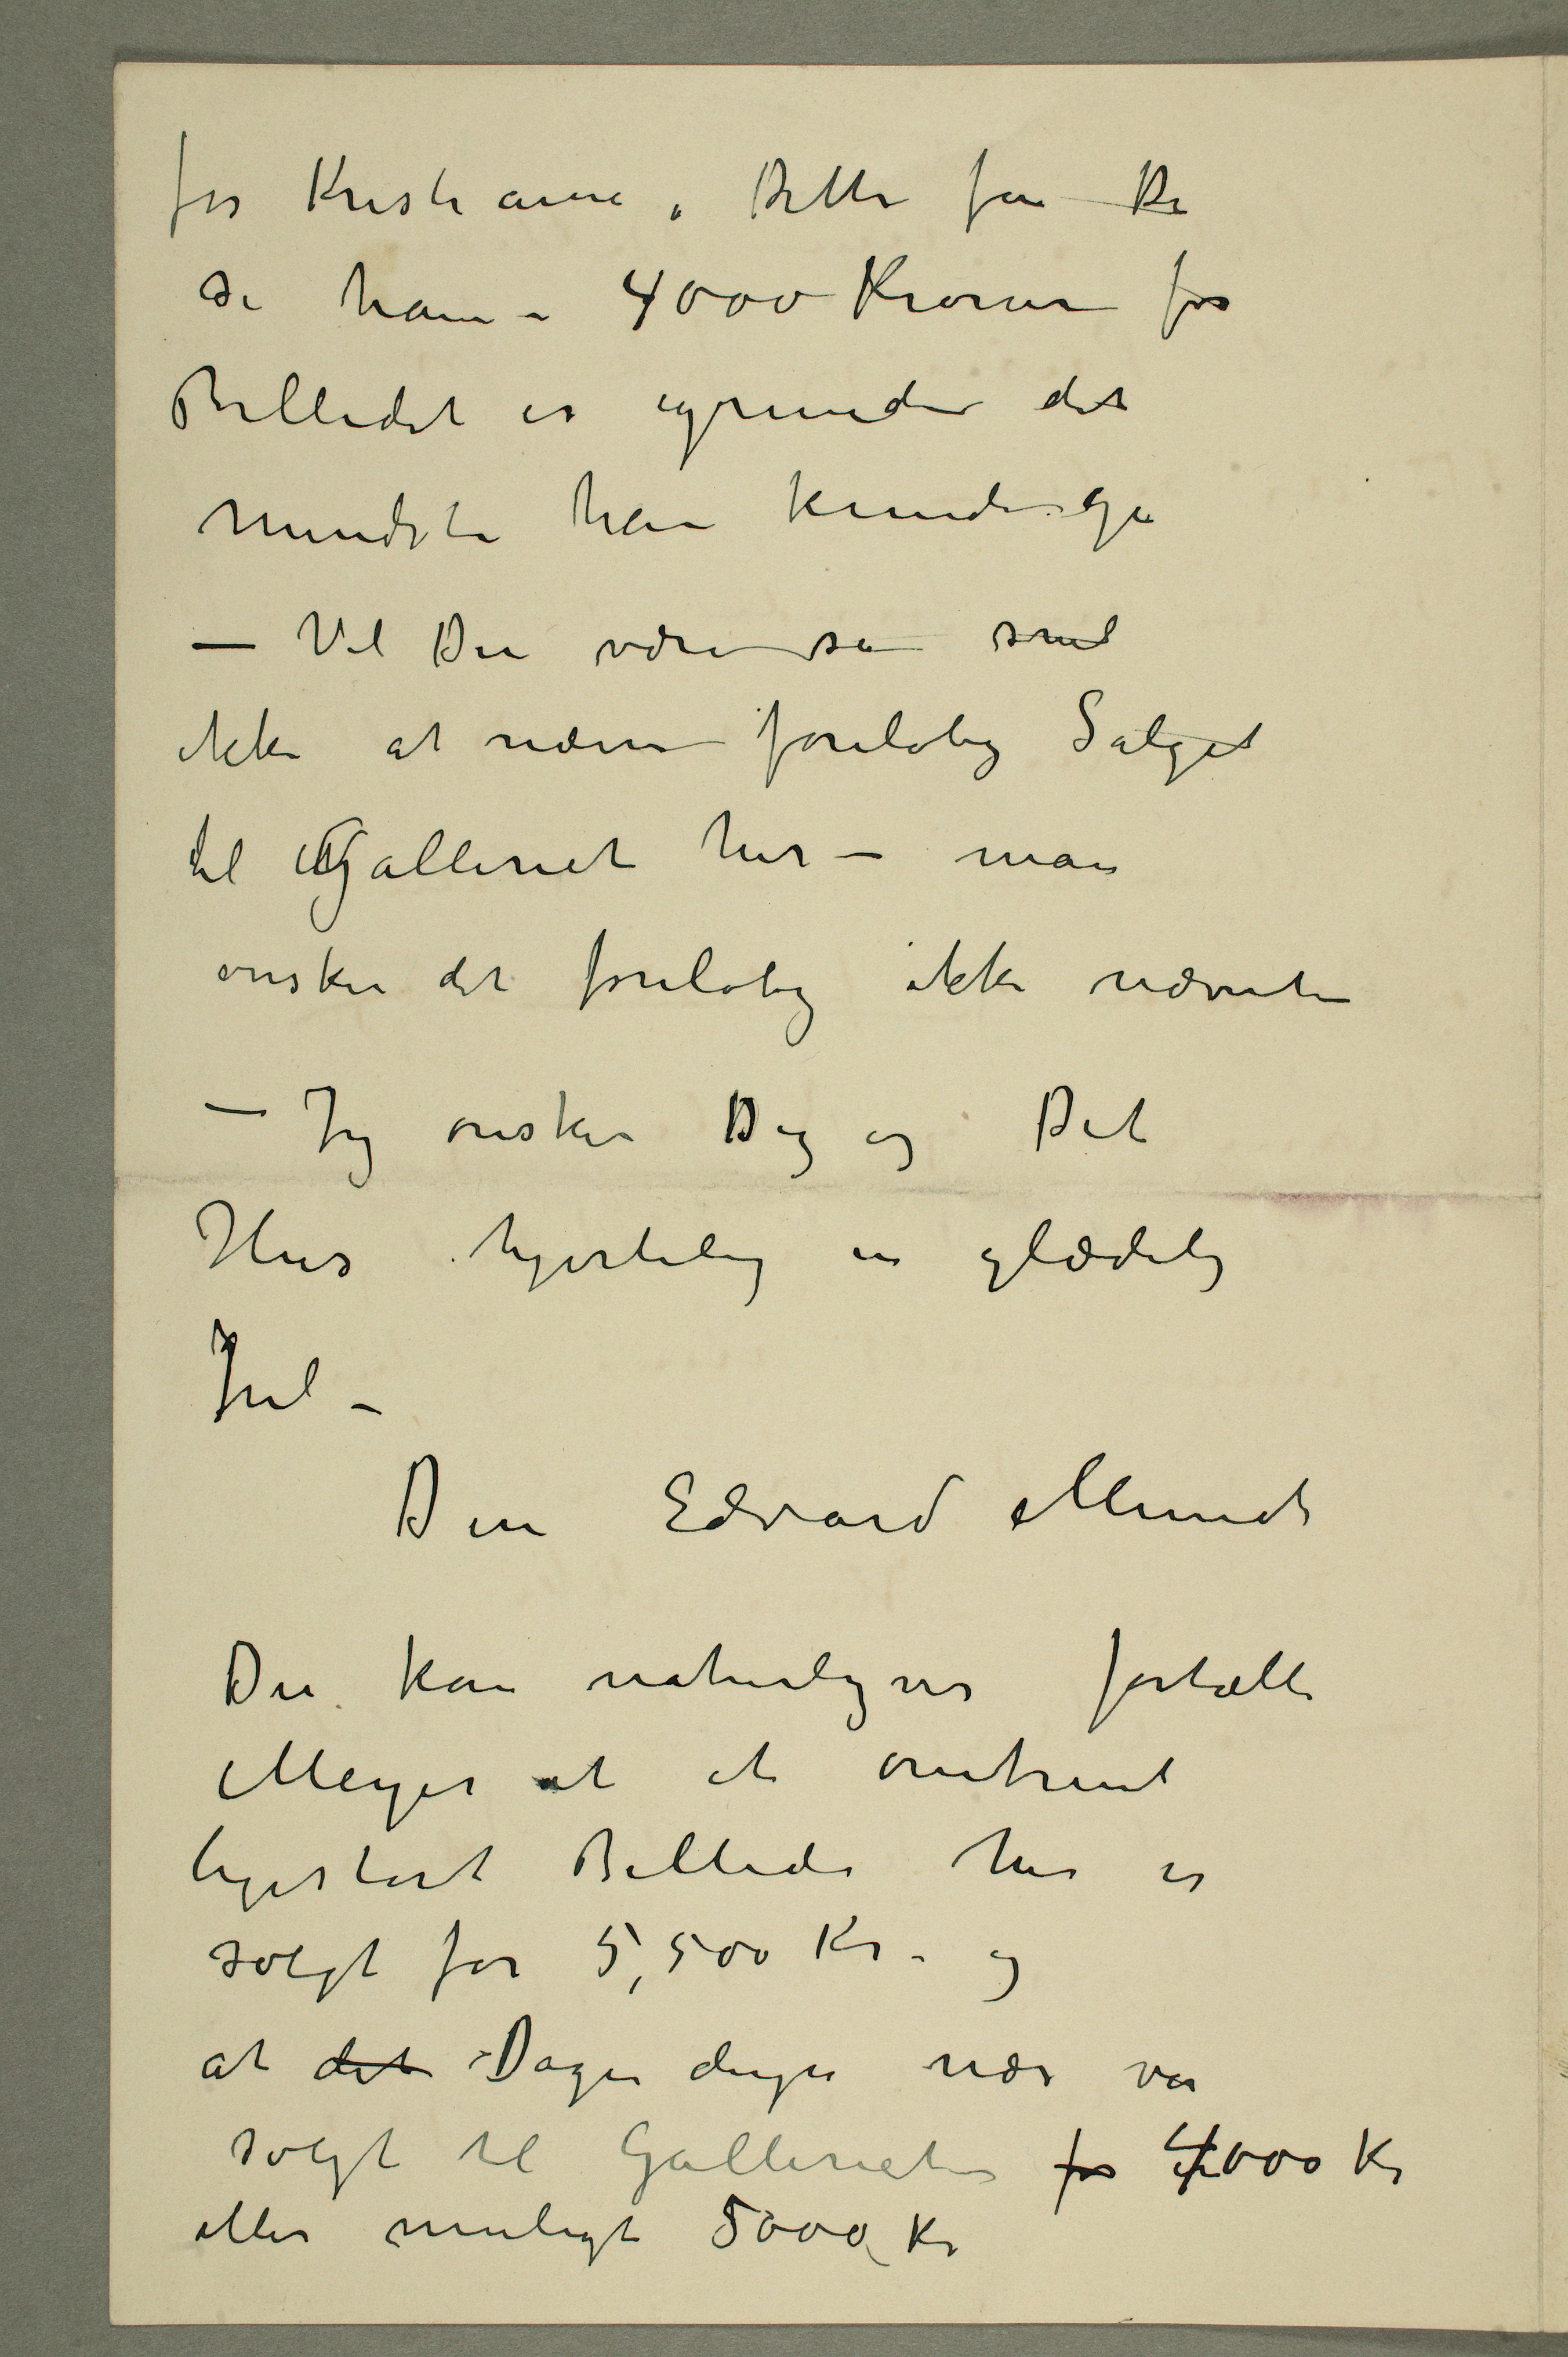 for Kristiania. Dette får De
si ham – 4000 Kroner for
Billedet er igrunden det
mindste han kunde gi
— Vil Du være så snil
ikke at nævne foreløbig Salget
til Galleriet her – man
ønsker det foreløbig ikke nævnt
— Jeg ønsker Dig og Dit
Hus hjertelig en glædelig
Jul –
Din Edvard Munch
Du kan naturligvis fortælle
Meyer at et omtrent
ligestort Billede her er
solgt for 5,500 Kr. og
at det Dagen derpå nær var
solgt til Galleriet for 4000 Kr
eller muligt 5000 Kr